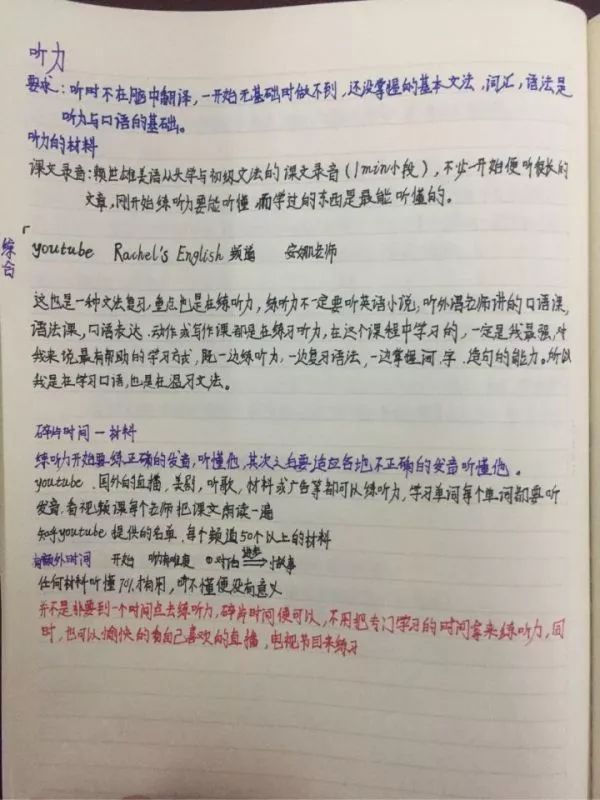 听力
要求：听时不在脑中翻译，一开始无基础时做不到，还没掌握的基本文法，词汇，语法是
听力与口语的基础。
听力的材料
课文录音：赖世雄美语从头学与初级文法的课文录音（1min小段），不必一开始便听很长的
文章，刚开始练听力要能听懂，而学过的东西是最能听懂的。
综合
youtube Rachel's English 频道 安娜老师
这也是一种文法复习，重点也是在练听力，练听力不一定要听英语小说，听外语老师讲的口语课，
语法课，口语表达、动作或写作课都是在练习听力，在这个课程中学习的，一定是我最强，对
我来说最有帮助的学习方式，既一边练听力，一边复习语法，一边掌握词、字、造句的能力。所以
我是在学习口语，也是在温习文法。
碎片时间一材料
练听力开始要练正确的发音，听懂他，其次之后要适应各地不正确的发音听懂他。
youtube、国外的直播，美剧，听歌，材料或广告等都可以练听力，学习单词每个单词都要听
发音，看视频课每个老师把课文朗读一遍
知乎youtube 提供的名单，每个频道50个以上的材料
有额外时间 开始 听有难度 ①对话 进步⇒ 故事
任何材料听懂70%才有用，听不懂便没有意义
并不是非要到一个时间点去练听力，碎片时间便可以，不用把专门学习的时间拿来练听力，同
时，也可以愉快的看自己喜欢的直播，电视节目来练习